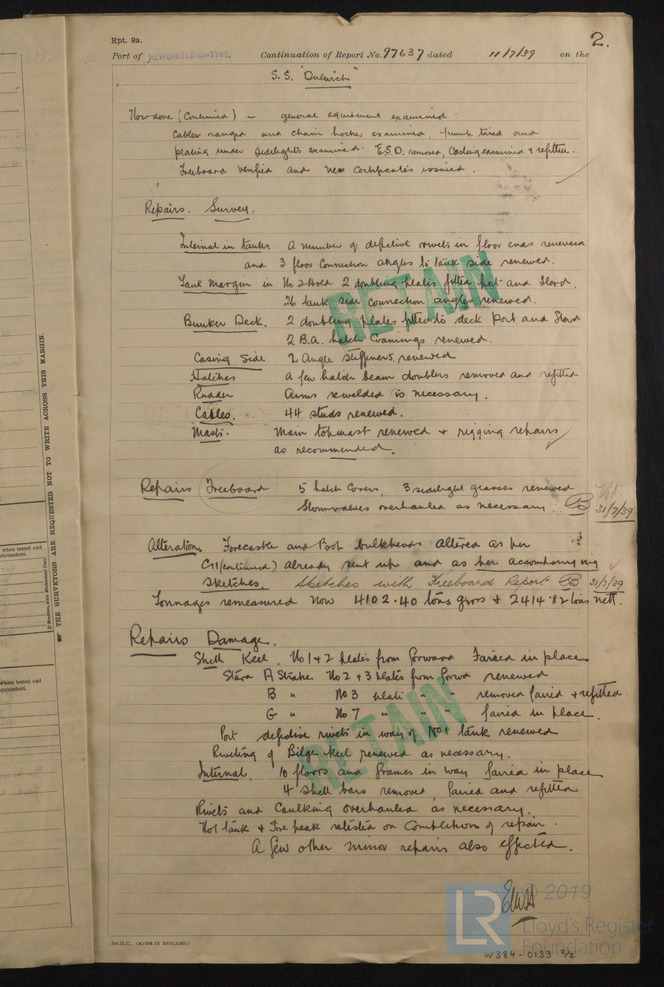 Rpt. 9a.
2.
Port of NEWCASTLE-on-TYNE. Continuation of Report No. 97637 dated 11/7/39 on the
S.S. "Dulwich"
Now done (Continued) - general equipment examined.
Cables ranged and chain locker examined, pumps tried and
plating under sidelights examined. E.S.D. removed, Casing examined & refitted.
Freeboard verified and new certificates issued.
Repairs. Survey.
Internal in tanks a number of defective rivets in floor ends renewed
and 3 floor connection angles to tank side renewed.
Tank Margin in No 2 Hold 2 doubling plates fitted port and Stard.
26 tank side connection angles renewed.
Bunker Deck. 2 doubling plates fitted to deck Port and Stard
2 B.A. hatch Coamings renewed.
Casing Side 2 Angle stiffeners, renewed
Hatches A few hatch beam doublers removed and refitted
Rudder Arms rewelded as necessary.
Cables. 44 studs renewed.
Masts. Main topmast renewed & rigging repairs
as recommended.
Repairs Freeboard 5 hatch Covers, 3 sidelight glasses renewed
Stormvalves overhauled as necessary. 31/7/39
Alterations Forecastle and Poop bulkheads altered as per
already sent up and as per accompanying
Sketches. Sketches with Freeboard Report 31/7/39
Tonnages remeasured now 4102.40 tons gross & 2414.82 tons nett.
Repairs Damage.
Shell Keel. No 1 & 2 plates from forward Faired in place
Stard A Strake No 2 & 3 plates from forwd renewed
B " No 3 plate " " removed faired & refitted
G " No 7 " " " faired in place.
Port defective rivets in way of No 1 tank renewed
Riveting of Bilge Keel renewed as necessary.
Internal. 10 floors and frames in way faired in place
4 Shell bars removed, faired and refitted
Rivets and Caulking overhauled as necessary.
No 1 tank & Fore peak retested on Completion of repair.
A few other minor repairs also effected.
RETAIN
RETAIN
THE SURVEYORS ARE REQUESTED NOT TO WRITE ACROSS THIS MARGIN.
(MADE IN ENGLAND)
LR © 2019
Lloyd's Register
Foundation
W384-0133 2/2